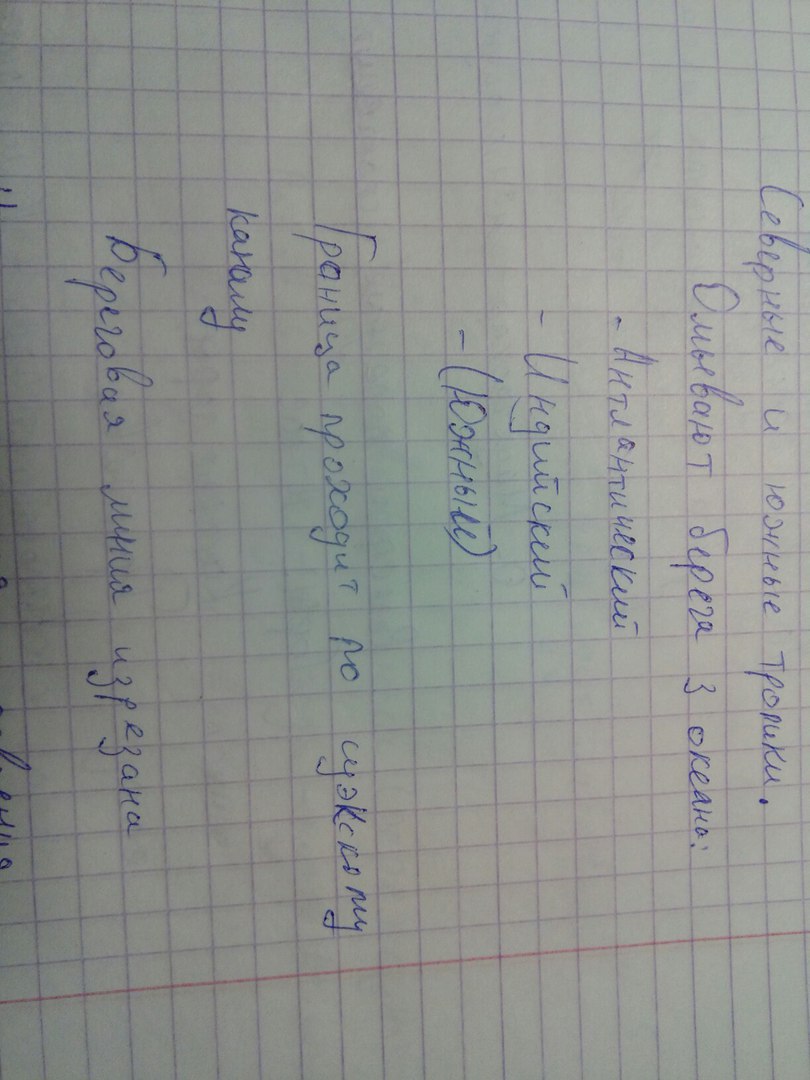 Северные и южные тропики.
Омывают берега 3 океана:
- Антлантический
- Индийский
- (Южный)
Граница проходит по суэкскому
каналу
Береговая линия изрезана